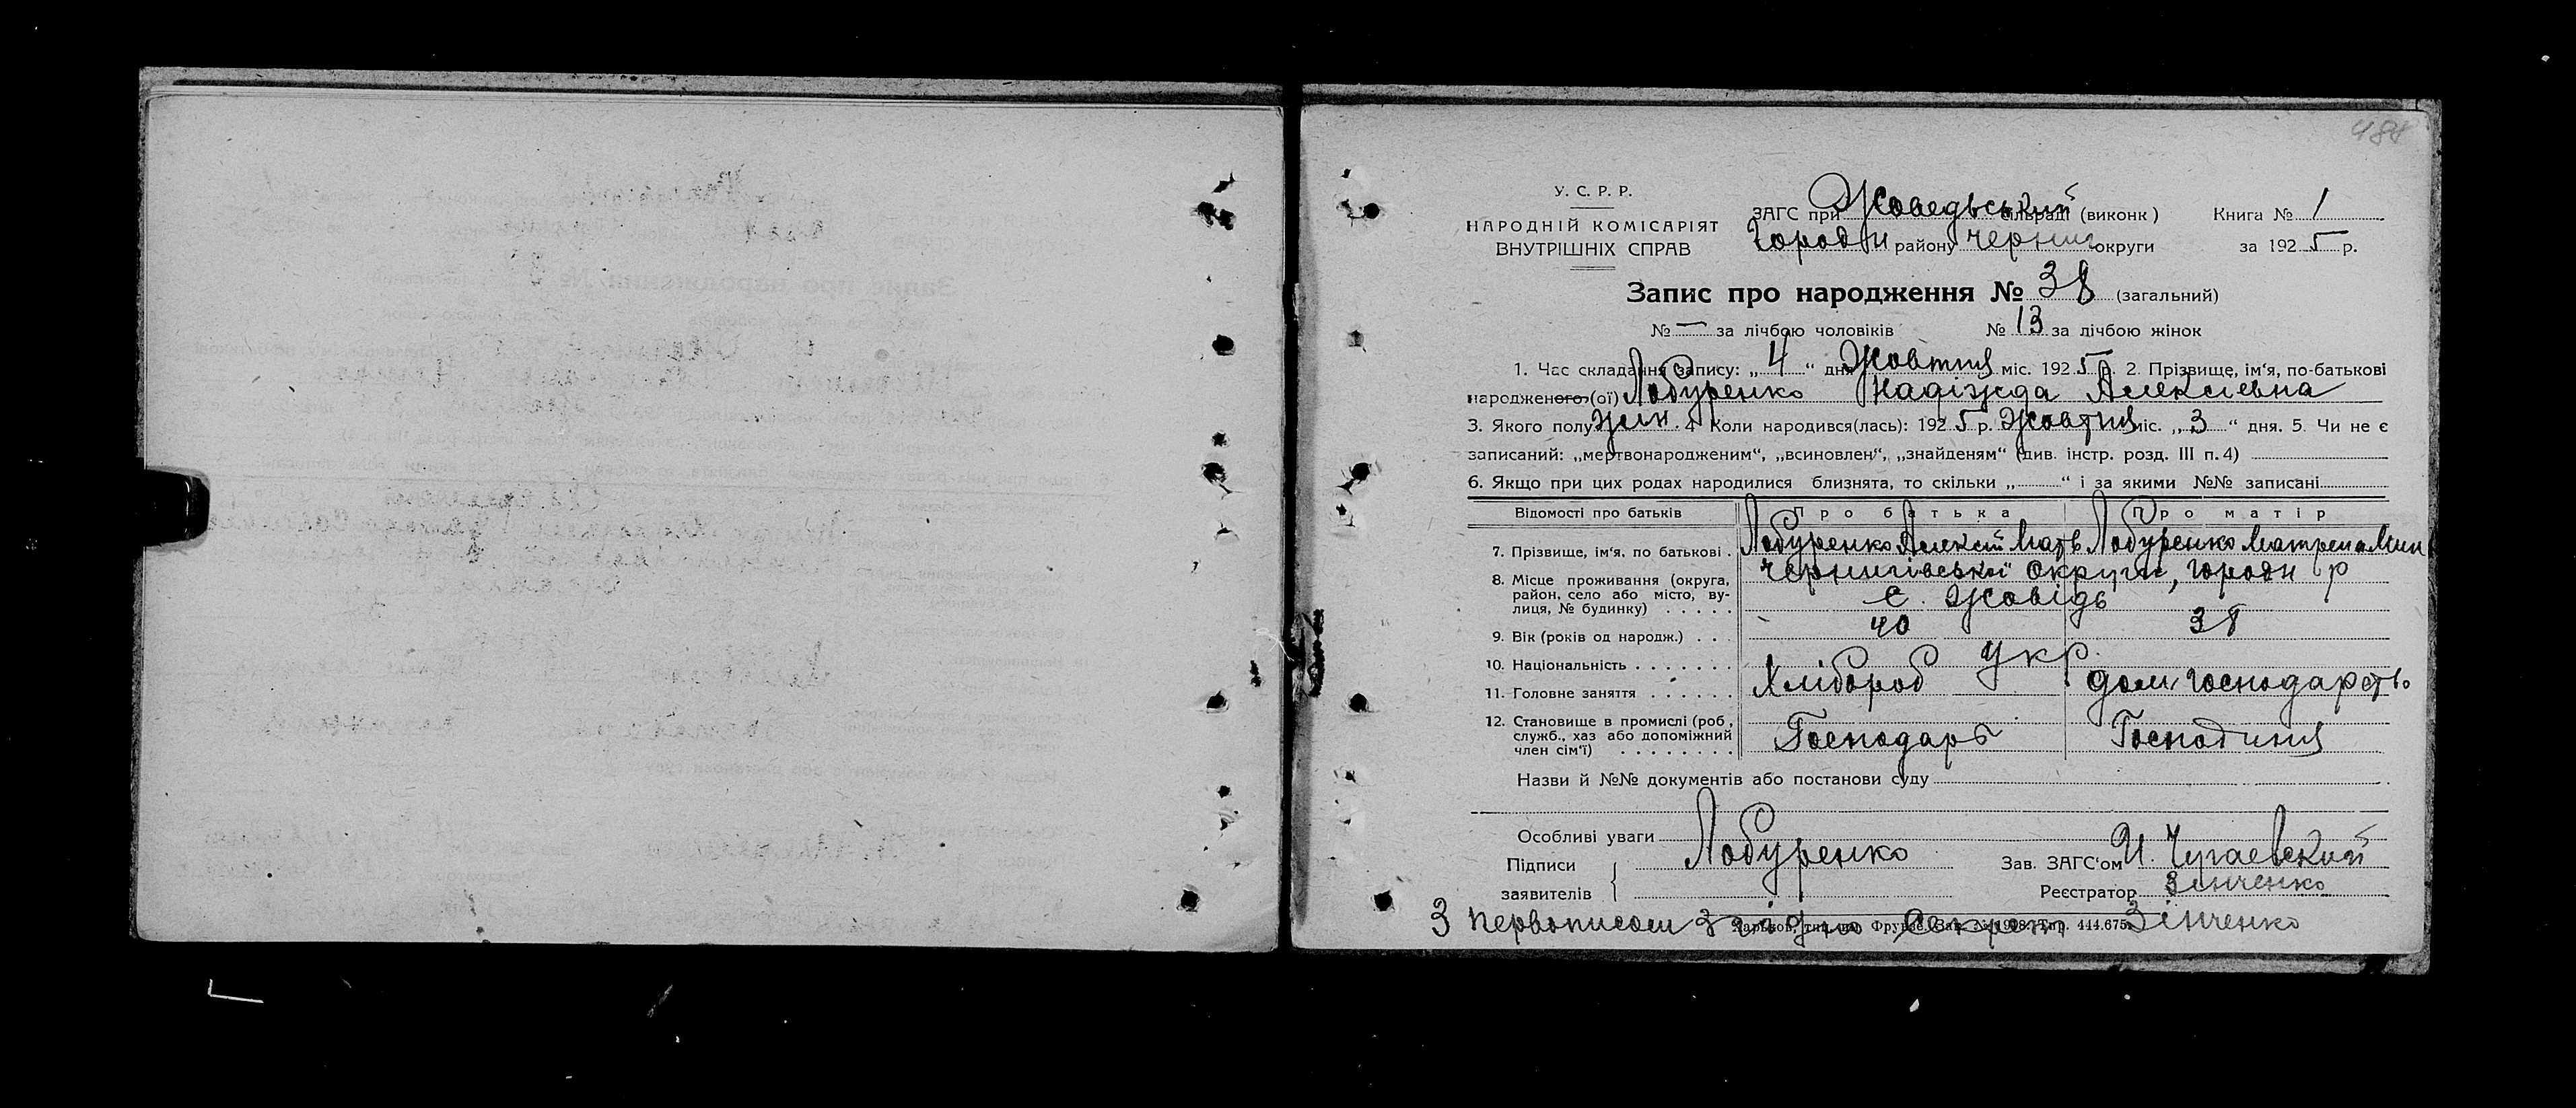 484
У. С. Р. Р.
НАРОДНІЙ КОМІСАРІЯТ
ВНУТРІШНІХ СПРАВ
ЗАГС при Жоведьський сільраді (виконк) Книга № 1
Городн району Черниг округи за 1925 р.
Запис про народження № 38 (загальний)
№ — за лічбою чоловіків № 13 за лічбою жінок
1. Час складання запису: „4“ дня Жовтня міс. 1925 р. 2. Прізвище, ім‘я, по-батькові
народженого (ої) Лобуренко Надіжда Алексіевна
3. Якого полу жін. 4 Коли народився(лась): 1925 р. Жовтня міс. „3“ дня. 5. Чи не є
записаний: „мертвонародженим“, „всиновлен“, „знайденям“ (див. інстр. розд. III п. 4)
6. Якщо при цих родах народилися близнята, то скільки „ “ і за якими №№ записані
Відомості про батьків Про батька Про матір
7. Прізвище, ім‘я, по батькові. Лобуренко Алексій Матв Лобуренко Матрена Мин
8. Місце проживання (округа, район, село або місто, вулиця, № будинку) Чернигівської округи, Городн р
с. Жовідь
9. Вік (років од народж.) 40 38
10. Національність Укр.
11. Головне заняття Хлібороб дом. господарств.
12. Становище в промислі (роб, служб., хаз або допоміжний член сім‘ї) Господарь Господиня
Назви й №№ документів або постанови суду
Особливі уваги
Підписи заявителів Лобуренко Зав. ЗАГС‘ом И. Чугаевский
Реєстратор Зінченко
З первописом згідно Секрет Зінченко